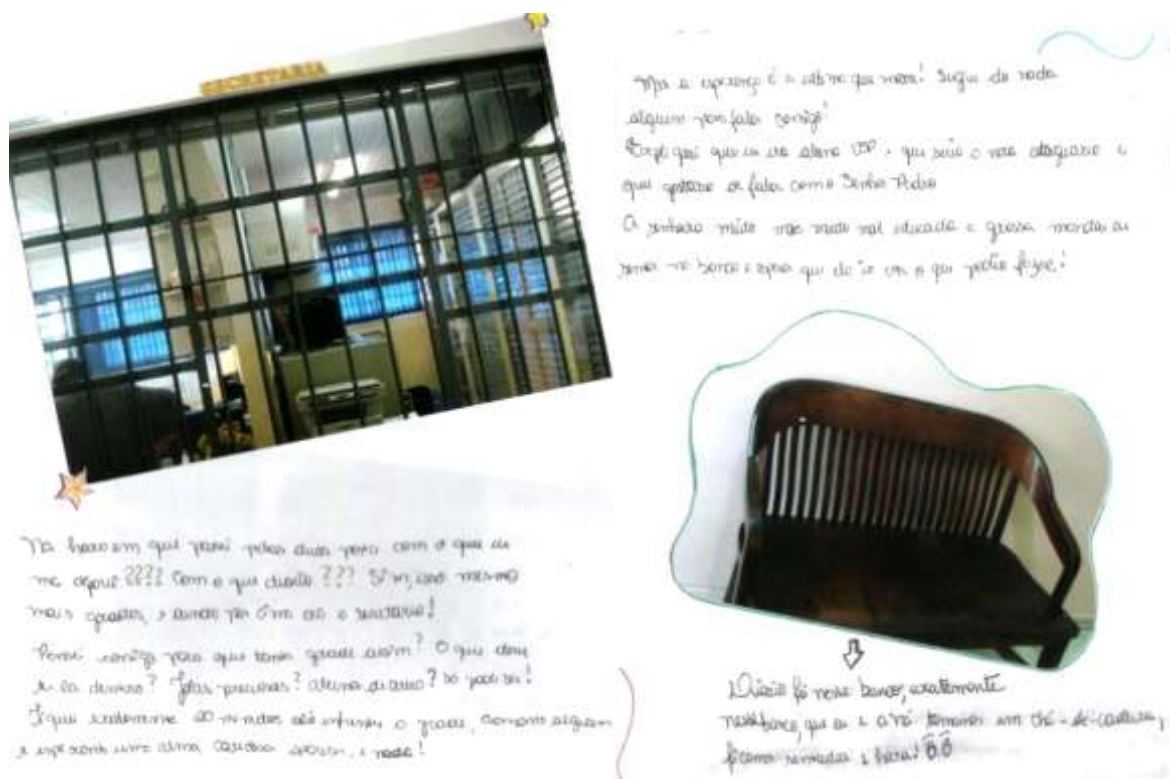 SECRETARIA
Na hora em que passei pelas duas portas com o que eu
me deparei???? Com o que diário??? Sim, isso mesmo
mais grades, e aonde por fim era a secretaria!
Pensei comigo para que tanta grade assim? O que deve
ter lá dentro? Jóias preciosas? alguns diários? Só pode ser!
Fiquei exatamente 20 minutos até enfurecer a grade, chamando alguém
e esperando uma alma caridosa aparecer, e nada!
Mas a esperança é a última que morre! Surgiu do nada
alguém para falar comigo!
Expliquei que eu era aluna USP, que seria a nova estagiária e
que gostaria de falar com a Senhora Pedro
A senhora muito mas muito mal educada e grossa mandou eu
sentar no banco e esperar que ela ia ver o que podia fazer!
Diário foi nesse banco, exatamente
nesse banco, que eu e a Fê tomamos um chá-de-cadeira,
ficamos sentadas 2 horas! ÔÔ